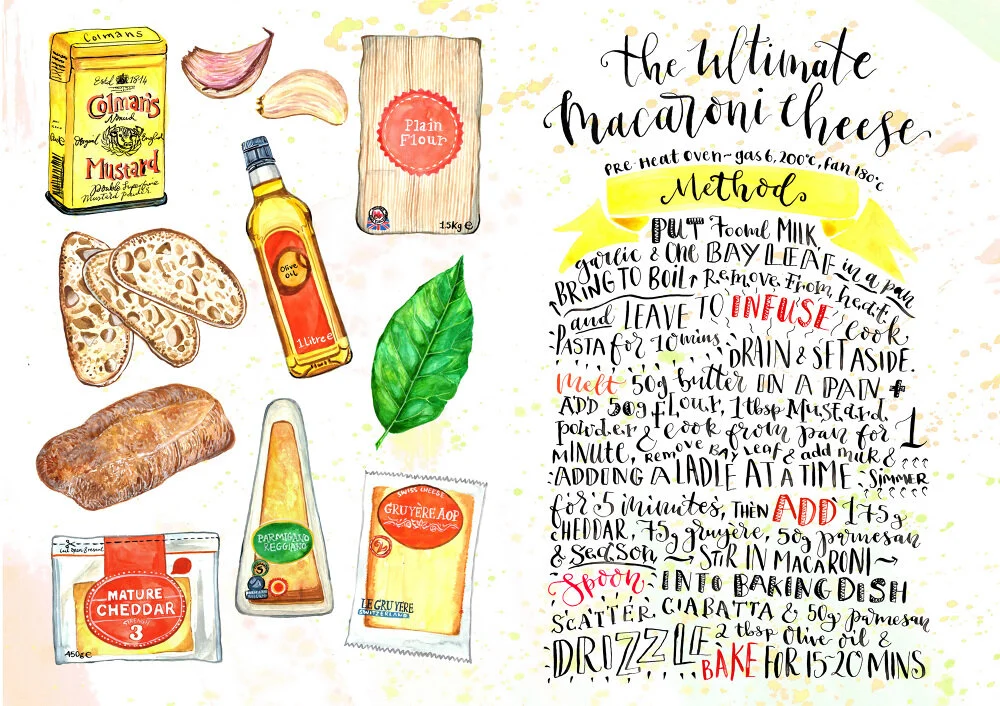 Colmans
Estd 1814
Colman's
Mustard
Double Superfine
Mustard Powder
Plain
Flour
1.5Kg e
Olive
oil
1 Litre e
PARMIGIANO
REGGIANO
SWISS CHEESE
GRUYÈRE AOP
LE GRUYERE
SWITZERLAND
MATURE
CHEDDAR
STRENGTH
3
450g e
the ultimate
Macaroni Cheese
PRE-Heat Oven~gas 6, 200°c, fan 180°c
Method
PUT 700ml MILK
garlic & ONE BAY LEAF in a pan
BRING TO BOIL Remove from heat
and LEAVE TO INFUSE Cook
PASTA for 10 mins DRAIN & SET ASIDE.
Melt 50g butter IN A PAN +
ADD 50g FLOUR, 1tbsp Mustard
powder & cook from pan for 1
MINUTE, Remove BAY Leaf & add milk &
ADDING A LADLE AT A TIME SIMMER
for 5 minutes, THEN ADD 175g
CHEDDAR, 75g gruyère, 50g parmesan
& season STIR IN MACARONI
Spoon INTO BAKING DISH
SCATTER CIABATTA & 50g parmesan
DRIZZLE 2 tbsp Olive oil &
BAKE FOR 15-20 MINS